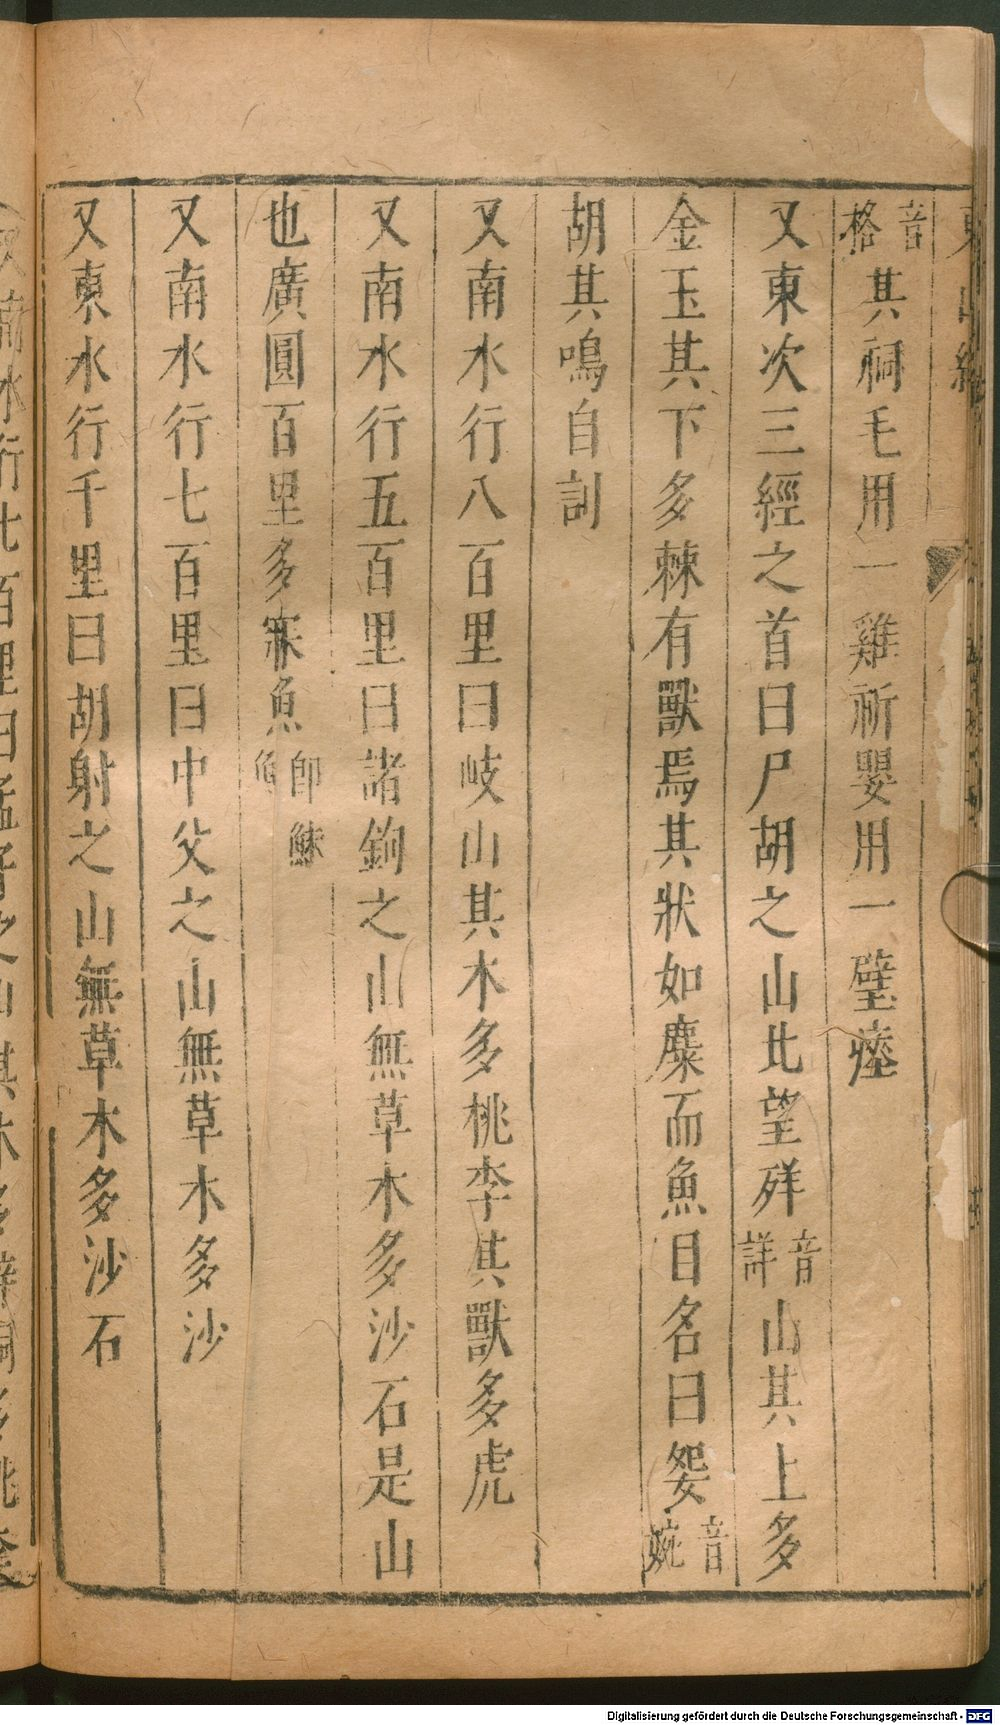 音格其祠毛用一雞祈嬰用一璧瘞
又東次三經之首曰尸胡之山北望𡶴音詳山其上多
金玉其下多棘有獸焉其狀如麋而魚目名曰妴音婉
胡其鳴自訓
又南水行八百里曰岐山其木多桃李其獸多虎
又南水行五百里曰諸鉤之山無草木多沙石是山
也廣圓百里多寐魚即鮇魚
又南水行七百里曰中父之山無草木多沙
又東水行千里曰胡射之山無草木多沙石
Digitalisierung gefördert durch die Deutsche Forschungsgemeinschaft - DFG